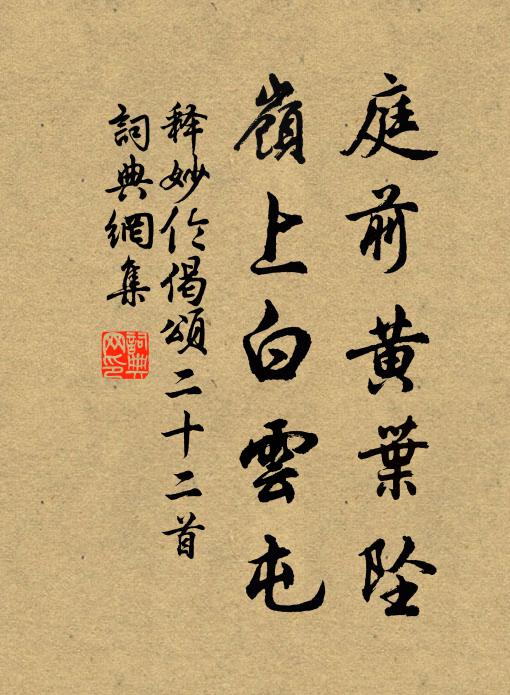 庭前黄葉墜
嶺上白雲屯
释妙伦偈頌二十二首
詞典網集
詞典网印